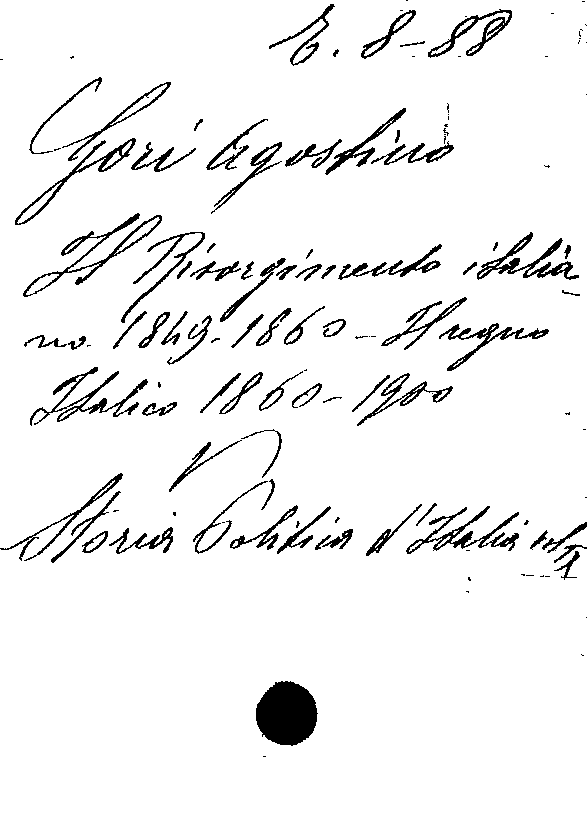 E. 8-88
Gori Agostino
Il Risorgimento italia-
no 1849-1860 - Il regno
Italico 1860-1900
V
Storia Politica d'Italia vol
X